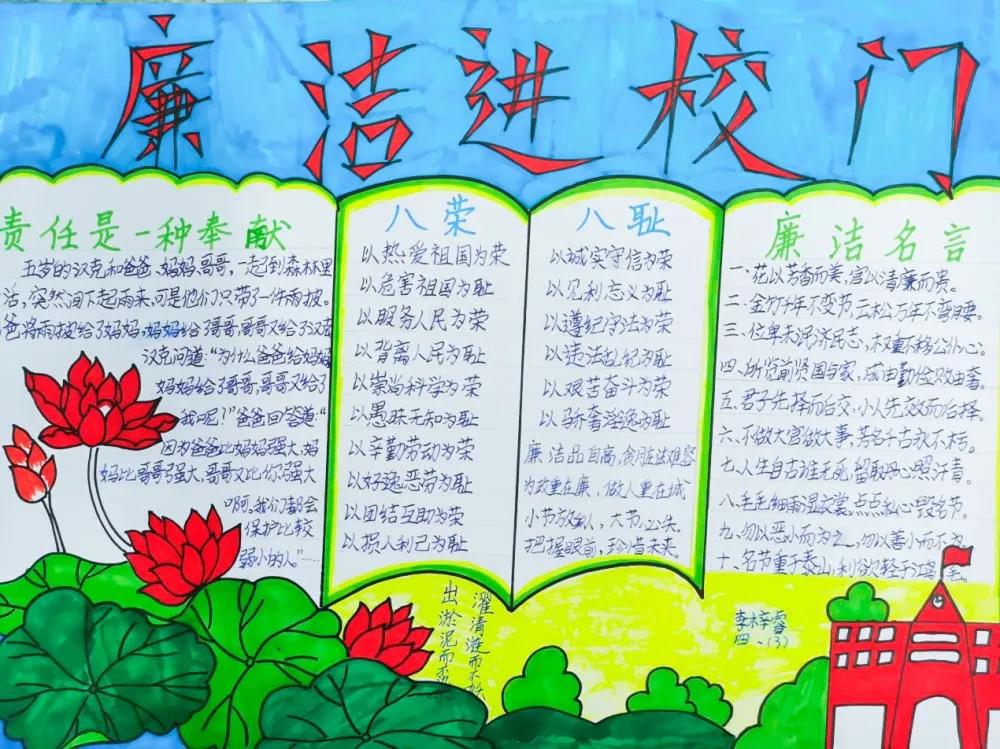 廉洁进校门
责任是一种奉献
五岁的汉克和爸爸、妈妈、哥哥,一起到森林里
活,突然间下起雨来,可是他们只带了一件雨披。
爸将雨披给了妈妈,妈妈给了哥哥,哥哥又给了汉克
汉克问道:“为什么爸爸给妈妈
妈妈给了哥哥,哥哥又给了
我呢?”爸爸回答道:“
因为爸爸比妈妈强大,妈
妈比哥哥强大,哥哥又比你强大
啊,我们都会
保护比较
弱小的人”……
八荣
以热爱祖国为荣
以危害祖国为耻
以服务人民为荣
以背离人民为耻
以崇尚科学为荣
以愚昧无知为耻
以辛勤劳动为荣
以好逸恶劳为耻
以团结互助为荣
以损人利己为耻
八耻
以诚实守信为荣
以见利忘义为耻
以遵纪守法为荣
以违法乱纪为耻
以艰苦奋斗为荣
以骄奢淫逸为耻
廉洁品自高,贪用在法难容
为政重在廉,做人重在诚
小节放纵,大节必失
把握眼前,珍惜未来
廉洁名言
一、花以芳香而美,官以清廉而贵。
二、金竹千年不变节,云松万年不弯腰。
三、位卑未泯济民志,权重不移公仆心。
四、历览前贤国与家,成由勤俭败由奢。
五、君子先择而后交,小人先交而后择
六、不做大官做大事,芳名千古永不朽。
七、人生自古谁无死,留取丹心照汗青。
八、毛毛细雨湿衣裳,点点私心毁名节。
九、勿以恶小而为之,勿以善小而不为
十、名节重于泰山,利欲轻于鸿毛。
出淤泥而不
濯清涟而不妖
李梓睿
四、(3)